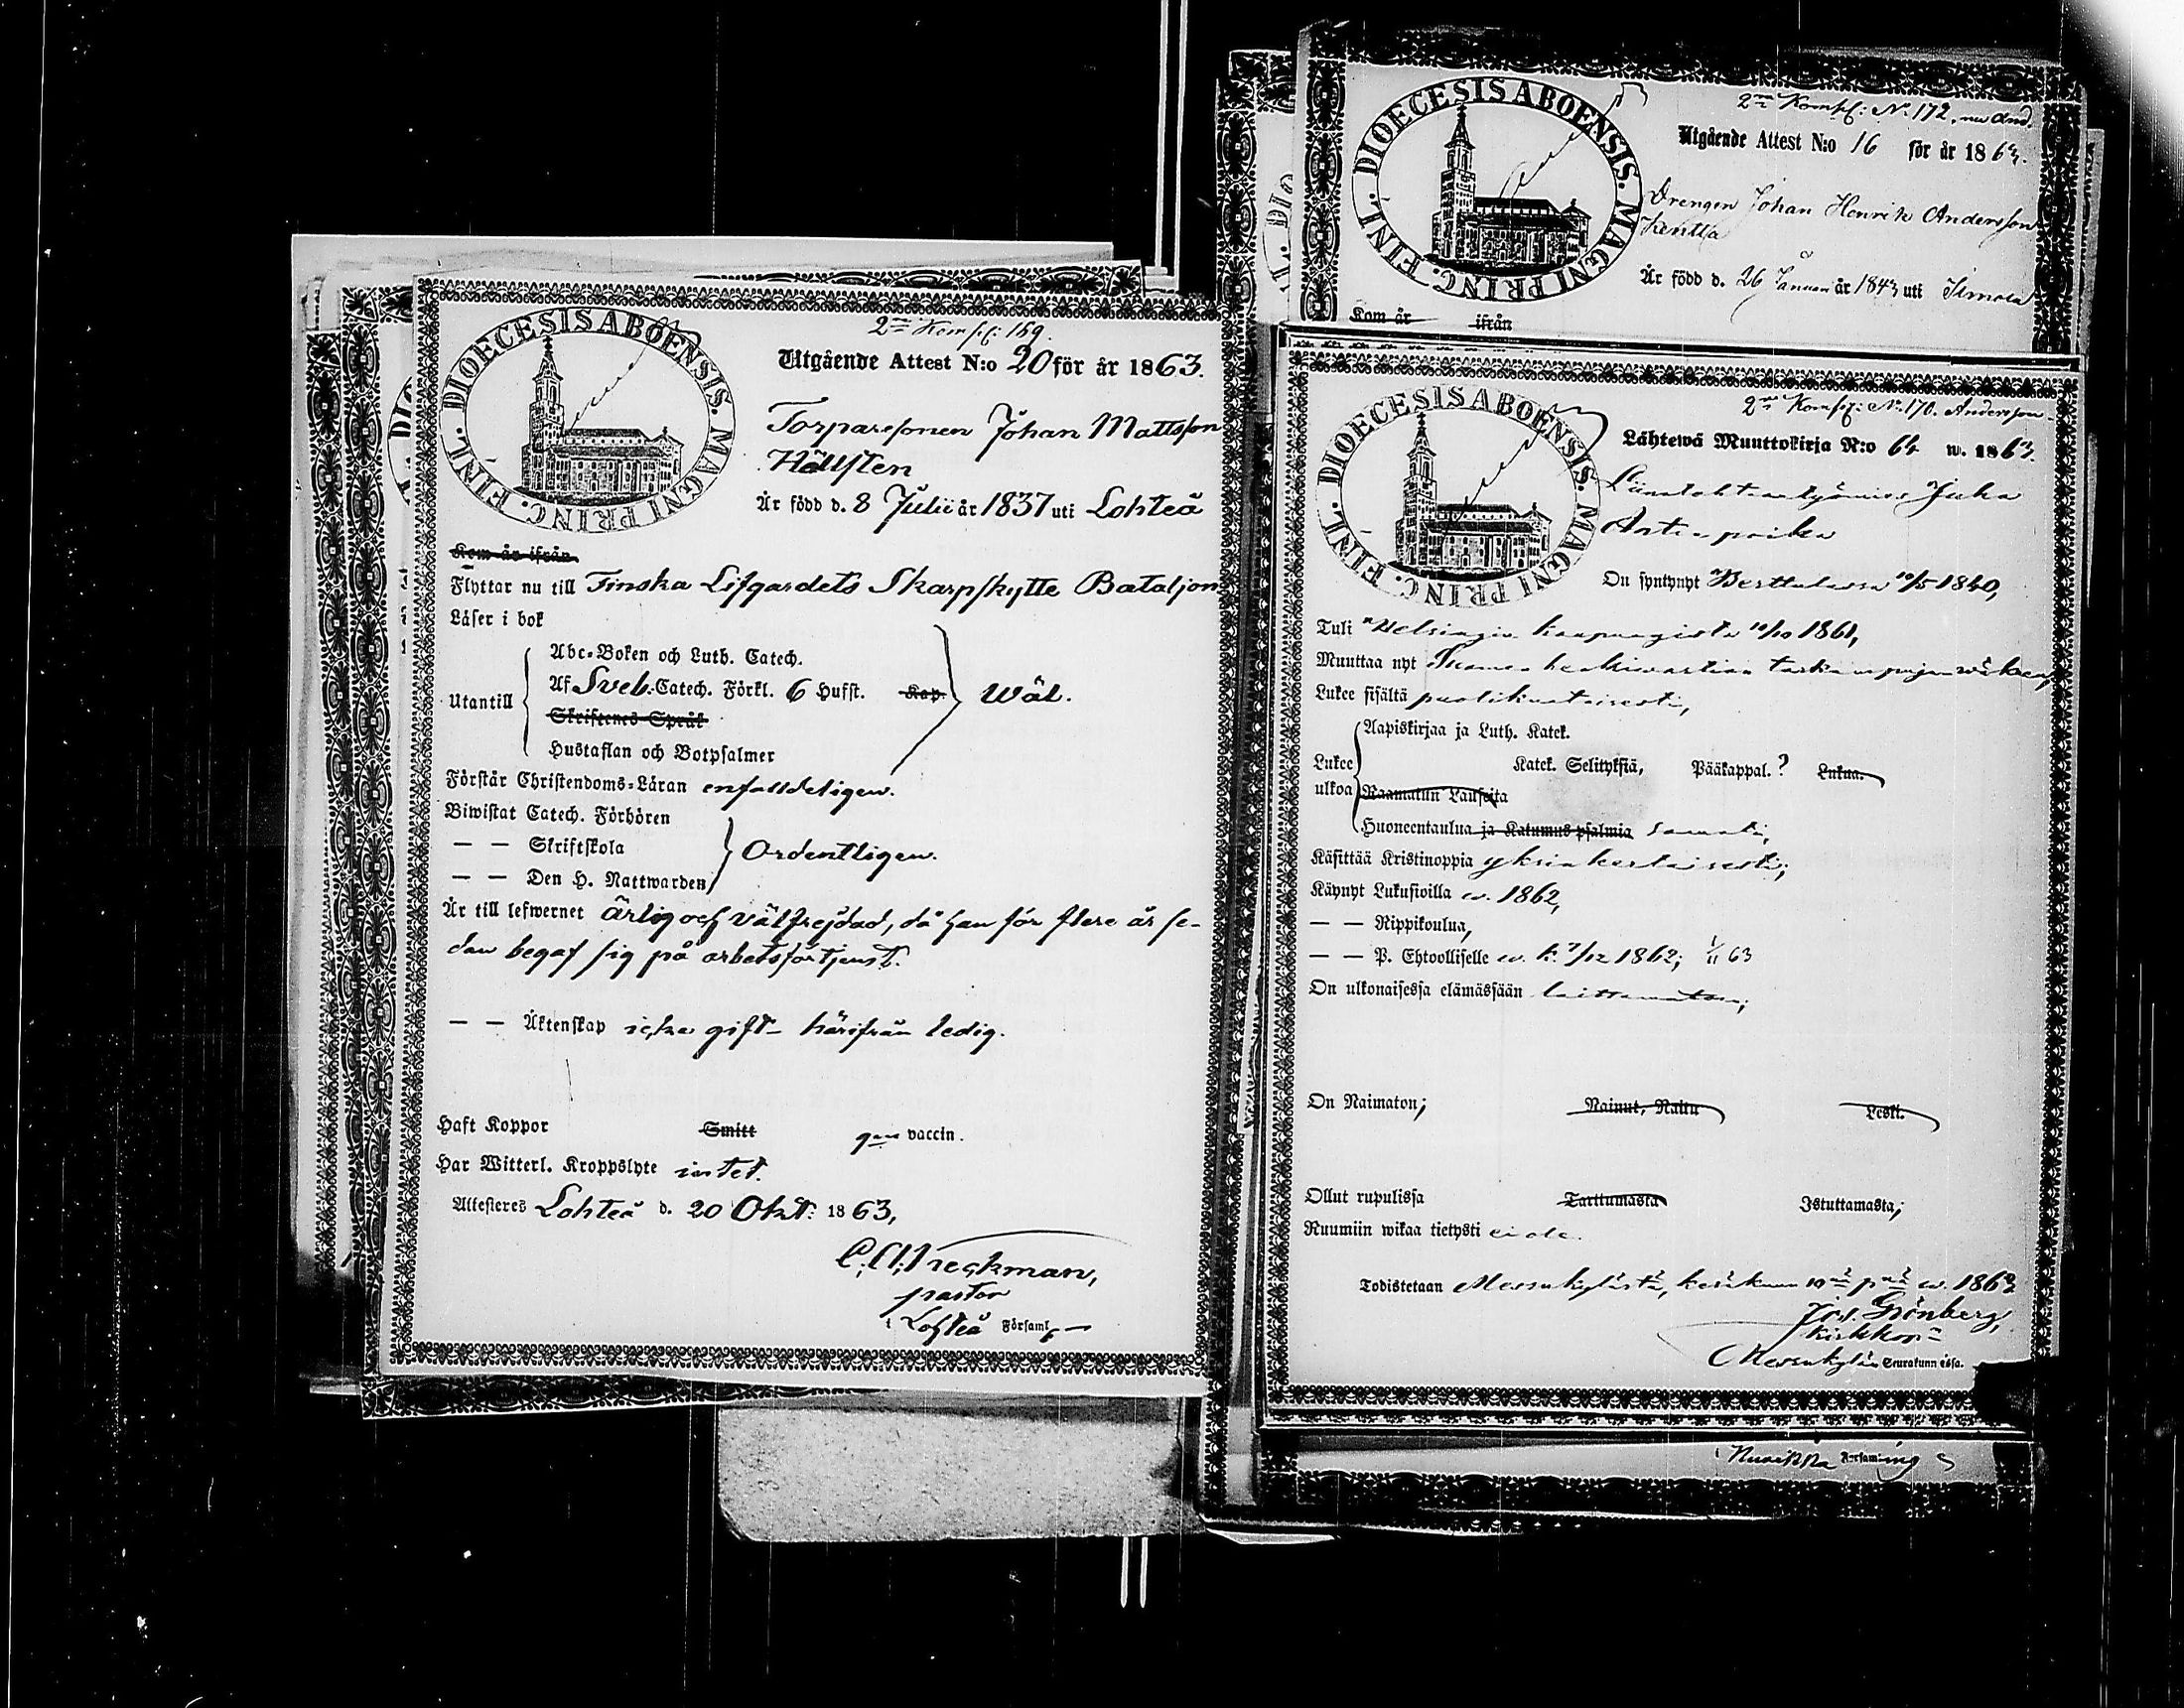 DIOECESIS ABOENSIS. MAGNI PRINC. FINL.
2:ne Komp: 169.
Utgående Attest N:o 20 för år 1863.
Torparesonen Johan Mattsson
Hällsten
Är född d. 8 Julii år 1837 uti Lohteå
Kom år ifrån
Flyttar nu till Finska Lifgardets Skarpskytte Bataljon
Läser i bok
Abc-Boken och Luth. Catech.
Utantill Af Sveb: Catech. Förkl. 6 Hufst. Kap. Wäl.
Skriftenes Språk
Hustaflan och Botpsalmer
Förstår Christendoms-Läran enfalldeligen.
Biwistat Catech. Förhören
— — Skriftskola Ordentligen.
— — Den H. Nattwarden
Är till lefwernet ärlig och välfrejdad, då han för flere år se-
dan begaf sig på arbetsförtjenst.
— — Äktenskap icke gift - härifrån ledig.
Haft Koppor Smitt gm vaccin.
Har Witterl. Kroppslyte intet.
Attesteres Lohteå d. 20 Okt: 1863,
pastor
Lohteå Församl
DIOECESIS ABOENSIS. MAGNI PRINC. FINL.
2:ne Komp: No. 172.
Utgående Attest N:o 16 för år 1863.
Drengen Johan Henrik Andersson
Är född d. 26 Januari år 1843 uti
Kom år ifrån
DIOECESIS ABOENSIS. MAGNI PRINC. FINL.
2:ne Komp: No. 170. Andersson
Lähtewä Muuttokirja N:o 64 w. 1863.
Juha
Antinpoika
On syntynyt 1840,
Tuli Helsingin kaupungista 10/10 1861,
Muuttaa nyt Suomen
Lukee sisältä puolikuntaisesti,
Aapiskirjaa ja Luth. Katek.
Lukee Katek. Selityksiä, Pääkappal.? Lukua.
ulkoa Raamatun Lauseita
Huoneentaulua ja Katumus psalmia
Käsittää Kristinoppia yksinkertaisesti;
Käynyt Lukusioilla w. 1862,
— — Rippikoulua,
— — P. Ehtoollisella w. k. 7/12 1862; 1/11 63
On ulkonaisessa elämässään laittamaton;
On Naimaton; Nainut, Naitu Leski.
Ollut rupulissa Tarttumasta Istuttamasta;
Ruumiin wikaa tietysti ei ole.
Todistetaan Messukylästä, kesäkuun 10 p w. 1863
Grönberg,
Messukylän Seurakunnassa.